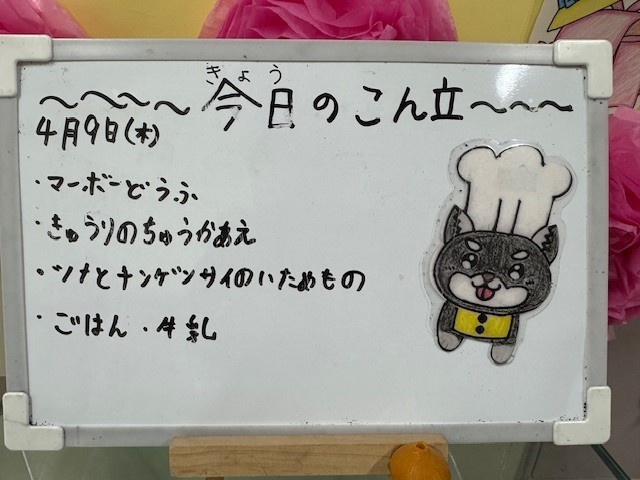 ～～～～今日のこん立～～～
きょう
4月9日(木)
・マーボーどうふ
・きゅうりのちゅうかあえ
・ツナとチンゲンサイのいためもの
・ごはん・牛乳